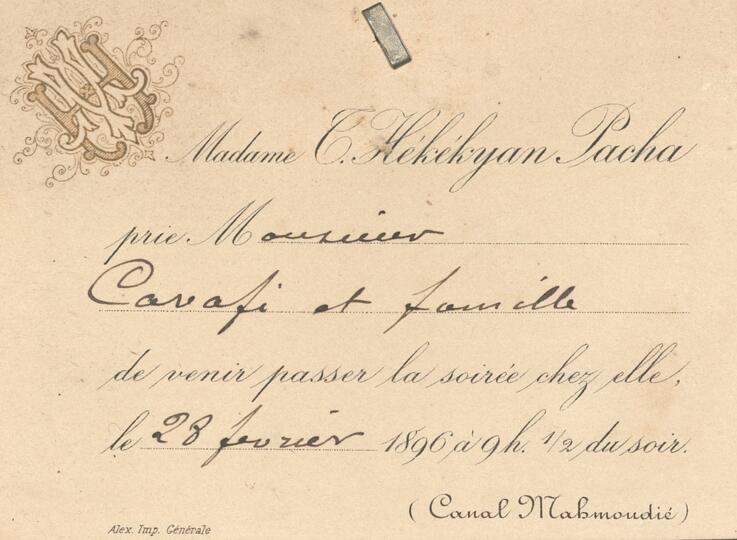 Madame T. Hékékyan Pacha
prie Monsieur
Cavafi et famille
de venir passer la soirée chez elle,
le 28 fevrier 1896 à 9 h. 1/2 du soir.
(Canal Mahmoudié)
Alex. Imp. Générale